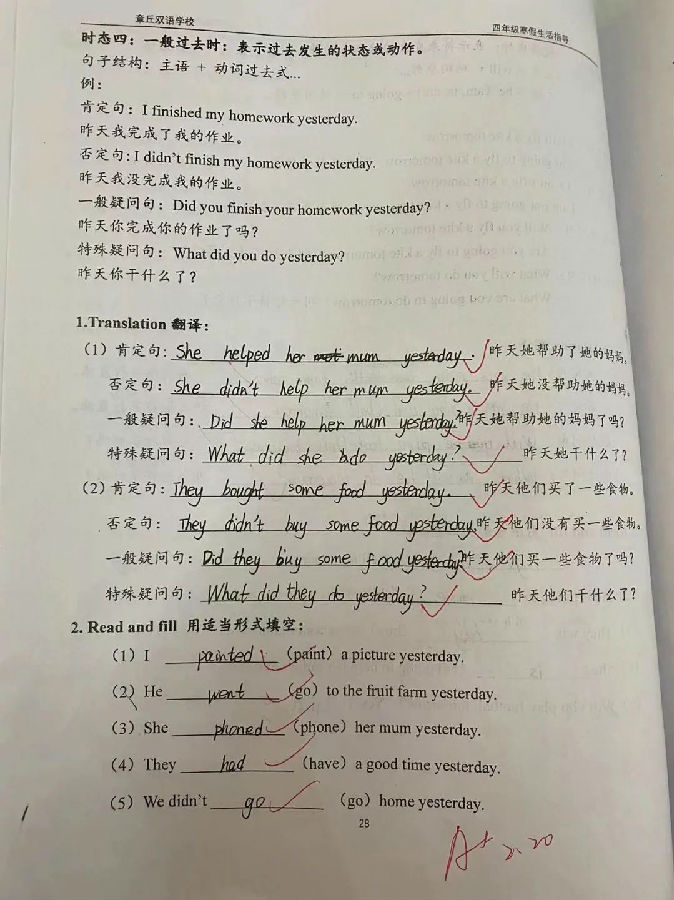 章丘双语学校
四年级寒假生活指导
时态四：一般过去时：表示过去发生的状态或动作。
句子结构：主语 + 动词过去式…
例：
肯定句：I finished my homework yesterday.
昨天我完成了我的作业。
否定句：I didn't finish my homework yesterday.
昨天我没完成我的作业。
一般疑问句：Did you finish your homework yesterday?
昨天你完成你的作业了吗？
特殊疑问句：What did you do yesterday?
昨天你干什么了？
1.Translation 翻译：
（1）肯定句：She helped her mum yesterday. 昨天她帮助了她的妈妈。
否定句：She didn't help her mum yesterday. 昨天她没帮助她的妈妈。
一般疑问句：Did she help her mum yesterday? 昨天她帮助她的妈妈了吗？
特殊疑问句：What did she do yesterday? 昨天她干什么了？
（2）肯定句：They bought some food yesterday. 昨天他们买了一些食物。
否定句：They didn't buy some food yesterday. 昨天他们没有买一些食物。
一般疑问句：Did they buy some food yesterday? 昨天他们买一些食物了吗？
特殊疑问句：What did they do yesterday? 昨天他们干什么了？
2. Read and fill 用适当形式填空：
（1）I painted（paint）a picture yesterday.
（2）He went（go）to the fruit farm yesterday.
（3）She phoned（phone）her mum yesterday.
（4）They had（have）a good time yesterday.
（5）We didn't go（go）home yesterday.
28
A+ 2.20